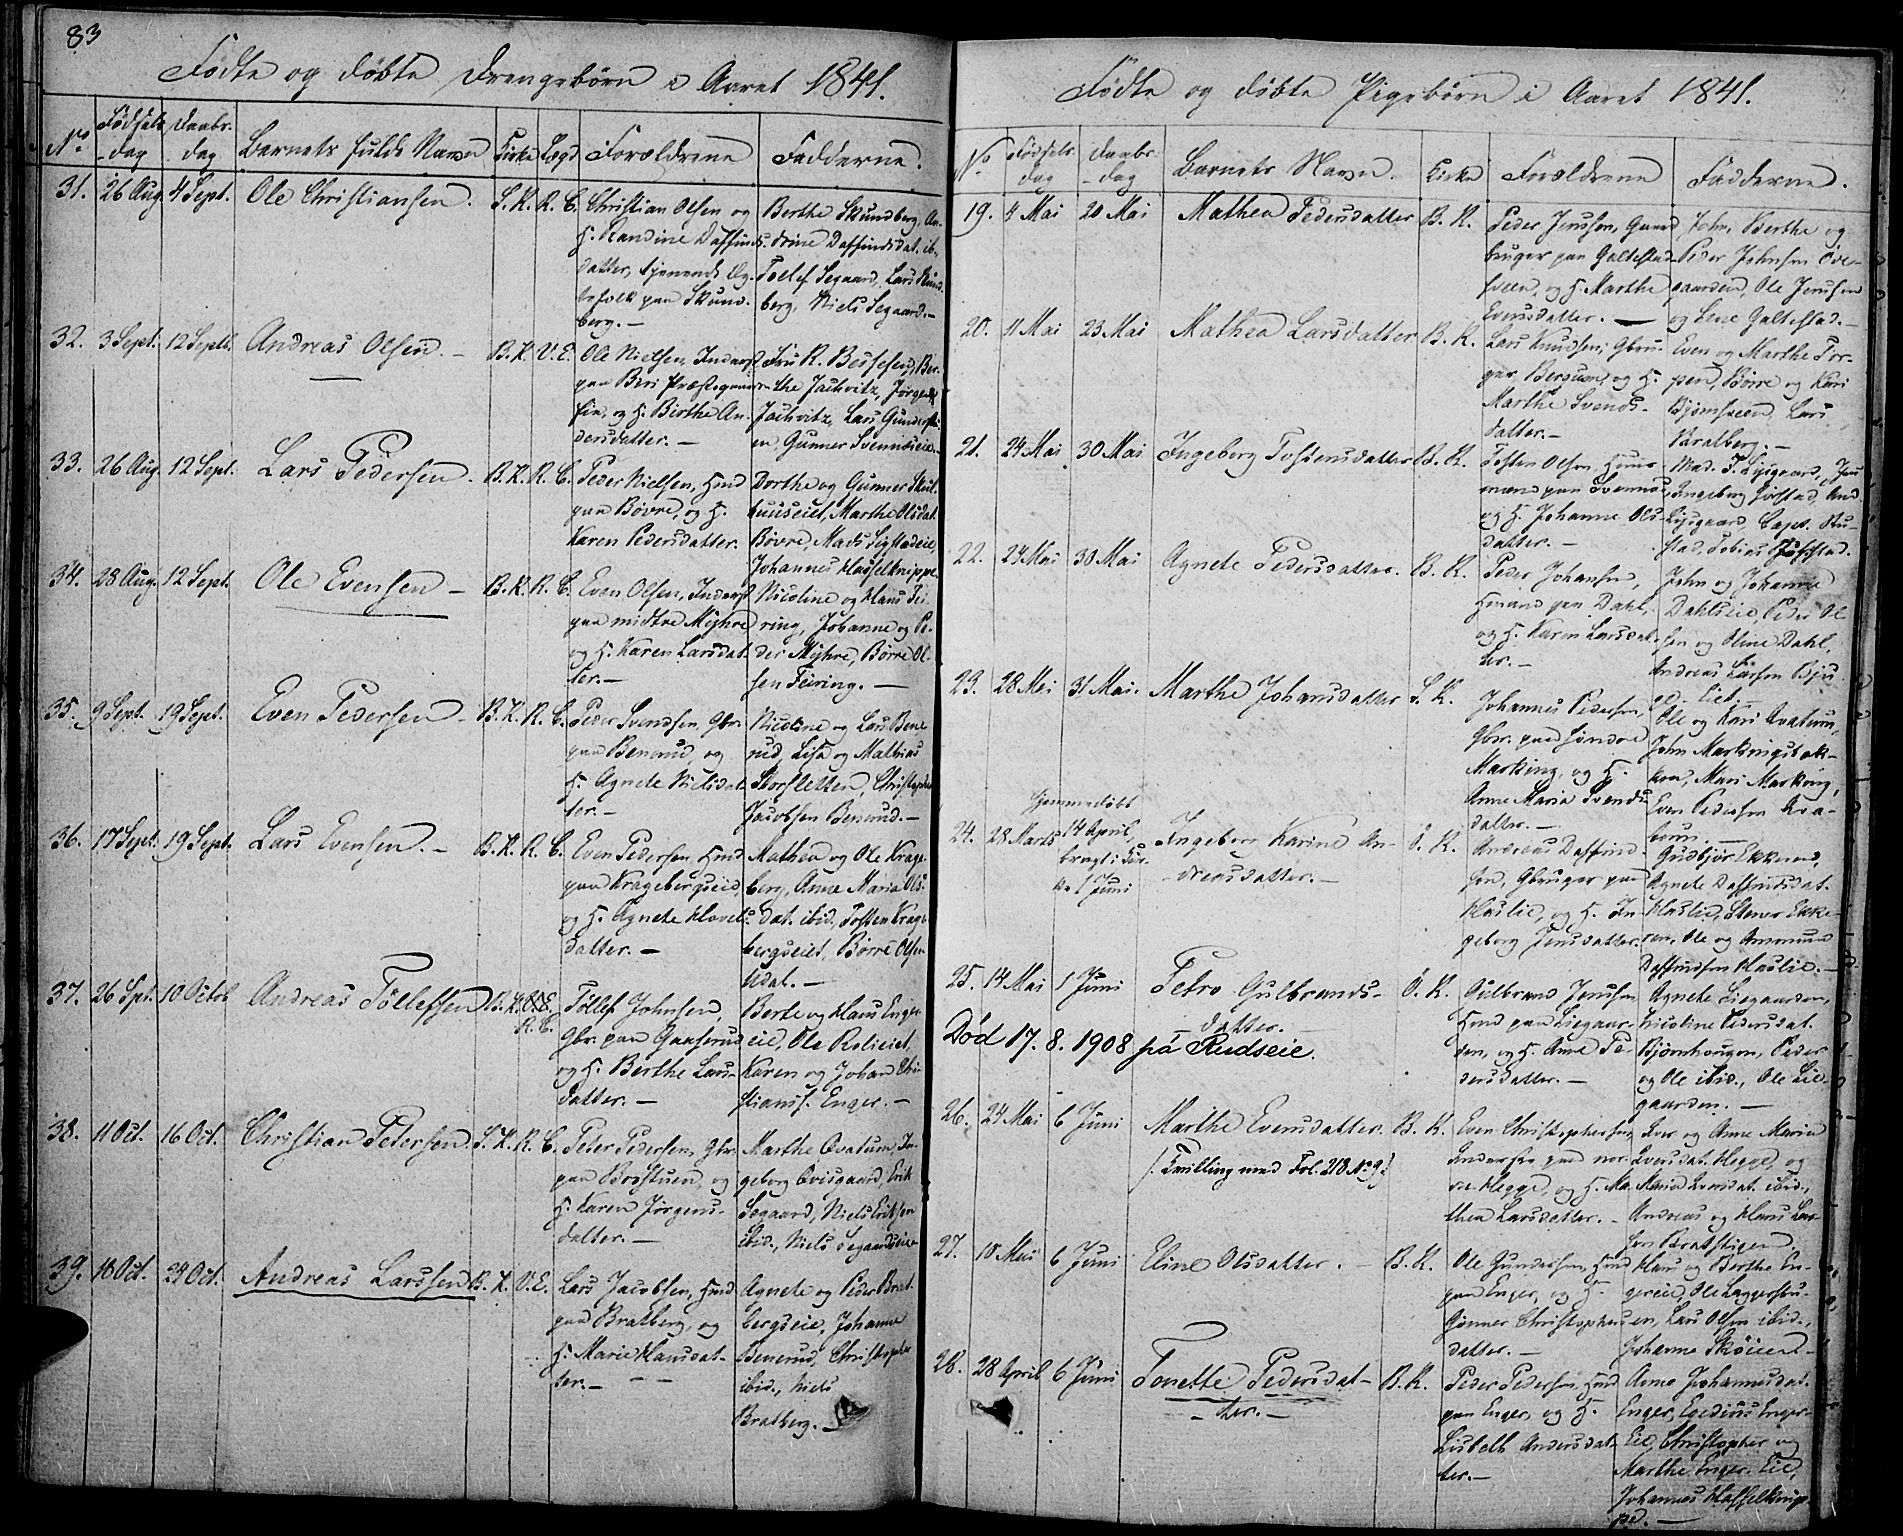 83
Fødte og døbte Drengebørn i Aaret 1841.
No Fødsels dag Daabs dag Barnets fulde Navn Kirke Lægd Forældrene Fadderne.
31. 26 Aug. 4 Sept. Ole Christiansen. S. K. R. C.
Christian Olsen og
H. Randine Daffinds-
datter, tjenende Æg-
tefolk paa Skund-
berg. —
Berthe Skundberg, An-
drine Daffindsdat. ib.,
Tollef Segaard, Lars Skund-
berg, Niels Segaard. —
32. 3 Sept. 12 Septb. Andreas Olsen. — B. K. V. E.
Ole Nielsen, Inderst
paa Biri Præstegaard-
eie, og H. Birthe An-
dersdatter. —
Fru R. Bessesen, Ber-
the Jachvitz, Jørgen
Jachvitz, Lars Gunders
en Gunner Svennæseie. —
33. 26 Aug. 12 Sept. Lars Pedersen. B. K. R. C.
Peder Nielsen, Hmd
paa Bøvre, og H.
Karen Pedersdatter.
Dorthe og Gunner Skul-
huuseiet, Marthe Olsdat.
Bøvre, Mads Sigstadeie,
Johannes Hasselknippe.
34. 28 Aug. 12 Sept. Ole Evensen — B. K. R. C.
Even Olsen, Inderst
paa midtre Myhre
og H. Karen Larsdat-
ter. —
Nicoline og Hans Fei-
ring, Johanne og Pe-
der Myhre, Børre Ol-
sen Feiring. —
35. 9 Sept. 19 Sept. Even Pedersen — B. K. R. C.
Peder Svendsen, Gbr.
paa Benerud, og
H. Agnete Nielsdat-
ter. —
Nicoline og Lars Bene-
rud, Lisa og Mathias
Storsletten, Christopher
Jacobsen Benerud. —
36. 17 Sept. 19 Sept. Lars Evensen. — B. K. R. C.
Even Pedersen, Hmd
paa Kragebergseie,
og H. Agnete Havels-
datter. —
Mathea og Ole Krage-
berg, Anne Maria Ols-
dat. ibid., Tosten Krage-
bergseiet, Børre Olsen
Udal. —
37. 26 Spt. 10 Octob. Andreas Tollefsen B. K. V. E.
R. C.
Tollef Johnsen,
Gbr. paa Gaaserud
og H. Berthe Lars-
datter. —
Berte og Hans Enger-
eie, Ole Rolieiet,
Karen og Johan Chri-
stians. Enger. —
38. 11 Oct. 16 Oct. Christian Pedersen. S. K. R. C.
Peter Pedersen, Gbr.
paa Brostuen, og
H. Karen Jørgens-
datter. —
Marthe Qvatum, In-
geborg Qvisgaard, Erik
Segaard, Niels Eriksen
ibid., Niels Segaardseie
39. 18 Oct. 24 Oct. Andreas Larssen B. K. V. E.
Lars Jacobsen, Hmd
paa Bratberg, og
H. Marie Hansdat-
ter. —
Agnete og Peder Brat-
bergseie, Johanne
Benerud, Christopher
ibid., Niels
Bratberg. —
Fødte og døbte Pigebørn i Aaret 1841.
No Fødsels dag Daabs dag Barnets Navn. Kirke Forældrene Fadderne.
19. 4 Mai 20 Mai Mathea Pedersdatter B. K.
Peder Jensen, Gaard-
bruger paa Galtestad-
sveen, og H. Marthe
Evensdatter. —
John, Berthe og
Peder Johnsen Ove-
gaarden, Ole Jensen
og Lene Galtestad. —
20. 11 Mai 23 Mai Mathea Larsdatter B. K.
Lars Knudsen, Gbru-
ger, Bergum, og H.
Marthe Svends-
datter. —
Even og Marthe Tor-
pen, Børre og Kari
Bjørnsveen, Lars
Bratberg. —
21. 24 Mai 30 Mai Ingeborg Tostensdatter B. K.
Tosten Olsen, Huus-
mand paa Svennæs,
og H. Johanne Ols-
datter. —
Mad. T. Lysgaard, Jfr.
Ingeborg Sigstad, And.
Lysgaard, Capt. Ru-
stad, Tobias Sigstad.
22. 24 Mai 30 Mai Agnete Pedersdatter. B. K.
Peder Johansen,
Hmand paa Dahl,
og H. Karen Larsdat-
ter. —
John og Johanne
Dahlseie, Peder Ol-
sen og Oline Dahl,
Andreas Larsen Bju-
ge Eiet —
23. 28 Mai 31 Mai. Marthe Johansdatter S. K.
Johannes Pedersen,
Gbr. paa søndre
Marking, og H.
Anne Maria Svends-
datter. —
Ole og Kari Qvatum,
John Markingsbak-
ken, Mari Marking,
Even Pedersen Kra-
bøl. —
24. 28 Marts Hjemmedøbt
14 April,
bragt i Kir-
ke 1 Juni
Ingeborg Karine An-
dreasdatter. — S. K.
Andreas Daffind-
sen, Gbruger paa
Haslie, og H. In-
geborg Jensdatter.
Gudbjør Ekkeren,
Agnete Daffindsdat.
Haslie, Stener Ekke-
ren, Ole og Ammund
Daffindsen Haslie. —
25. 14 Mai 1 Juni Petro Gulbrands-
datter. — S. K.
Gulbrand Jensen
Hmd paa Liegaar-
den, og H. Anne Pe-
dersdatter. —
Agnete Liegaarden,
Nicoline Pedersdat.
Bjørnhaugen, Peder
og Ole ibid., Ole Lie-
gaarden. —
Død 17. 8. 1908 på Rudseie.
26. 24 Mai 6 Juni Marthe Evensdatter. B. K.
(Tvilling med Fol. 218 No 9.)
Even Christophersen,
Inderste paa nor-
dre Hegge, og H. Ma-
thea Larsdatter. —
Iver og Anne Maria
Iversdat. Hegge, og
Maria Iversdat. ibid.,
Andreas og Hans Lar-
sen Bratstigen.
27. 18 Mai 6 Juni Eline Olsdatter. — B. K.
Ole Gundersen, Hmd
paa Enger, og H.
Gunner Christophers-
datter. —
Hans og Berthe En-
gereie, Ole Laggerstu-
en, Lars Olsen ibid.,
Johanne Skøien —
28. 28 April 6 Juni Tonette Pedersdat-
ter. — B. K.
Peder Pedersen, Hmd
paa Enger, og H.
Lisbeth Andersdat-
ter. —
Anne Johannesdat.
Enger, Egedius Enger-
Eie, Christopher og
Marthe Enger. Eie,
Johannes Hasselknip-
pe. —